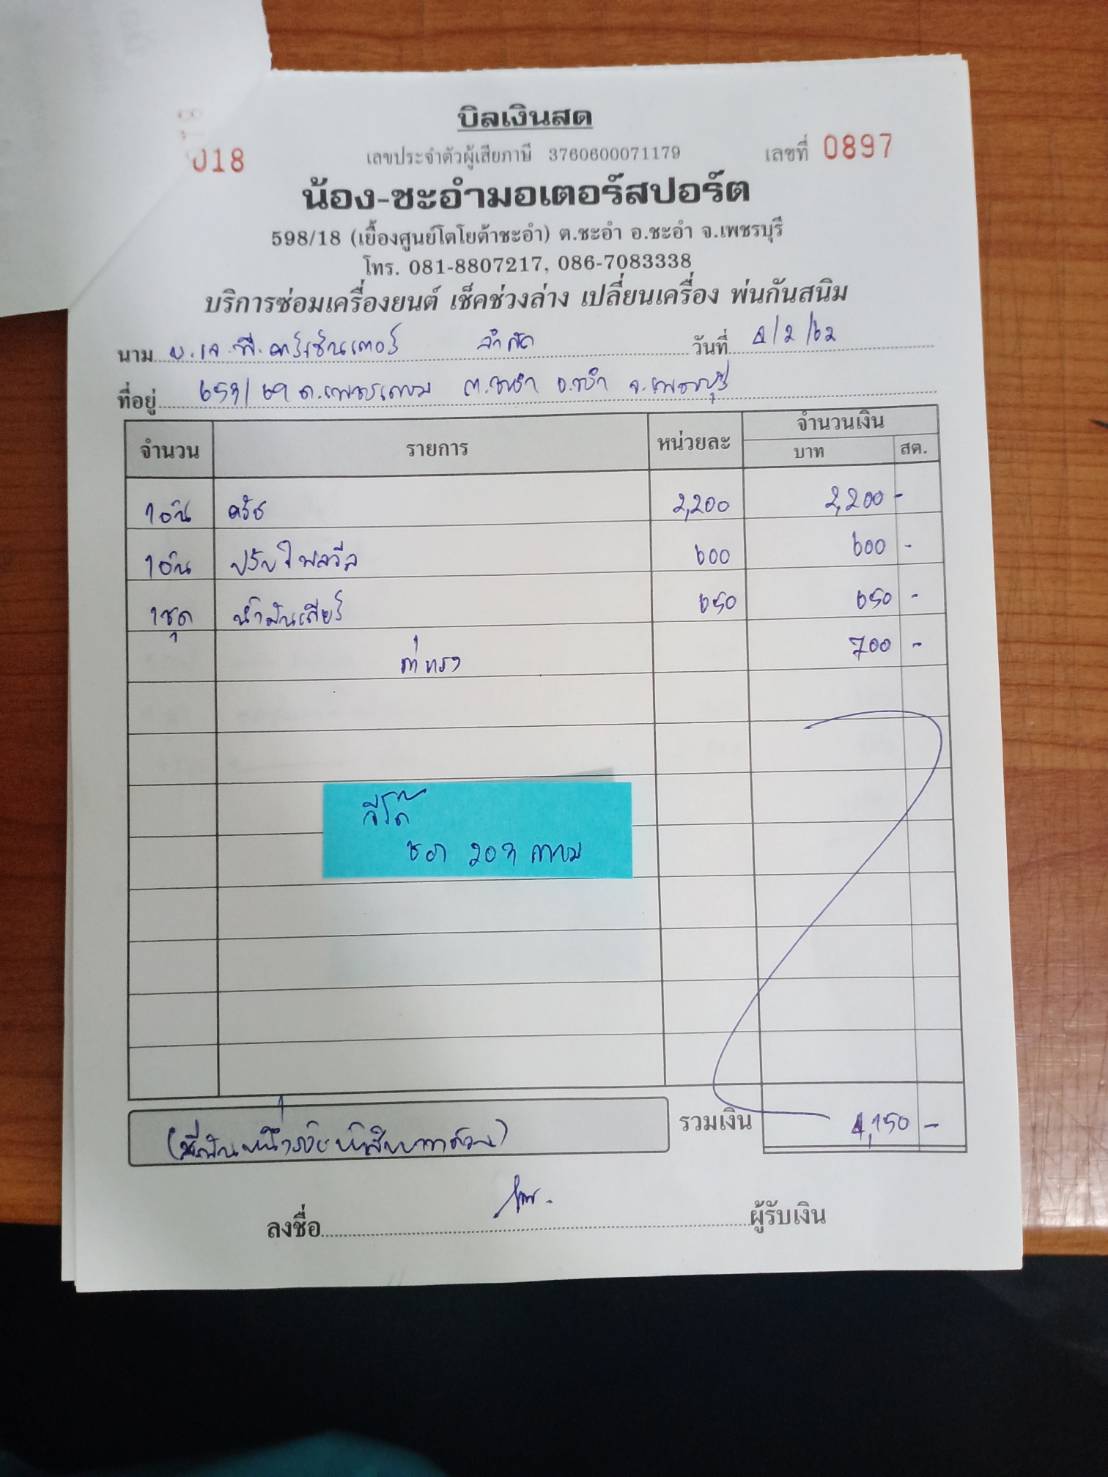 บิลเงินสด
018 เลขประจำตัวผู้เสียภาษี 3760600071179 เลขที่ 0897
น้อง-ชะอำมอเตอร์สปอร์ต
598/18 (เยื้องศูนย์โตโยต้าชะอำ) ต.ชะอำ อ.ชะอำ จ.เพชรบุรี
โทร. 081-8807217, 086-7083338
บริการซ่อมเครื่องยนต์ เช็คช่วงล่าง เปลี่ยนเครื่อง พ่นกันสนิม
นาม บ.เจ.พี.คาร์เซ็นเตอร์ จำกัด วันที่ 4/2/62
ที่อยู่ ถ.เพชรเกษม ต.ชะอำ อ.ชะอำ จ.เพชรบุรี
จำนวน รายการ หน่วยละ จำนวนเงิน
บาท สต.
1อัน ครัช 2,200 2,200 -
1อัน ปรับไฟลวีล 600 600 -
1ชุด น้ำมันเกียร์ 650 650 -
ค่าแรง 700 -
รวมเงิน 4,150 -
(สี่พันหนึ่งร้อยห้าสิบบาทถ้วน)
ลงชื่อ ผู้รับเงิน